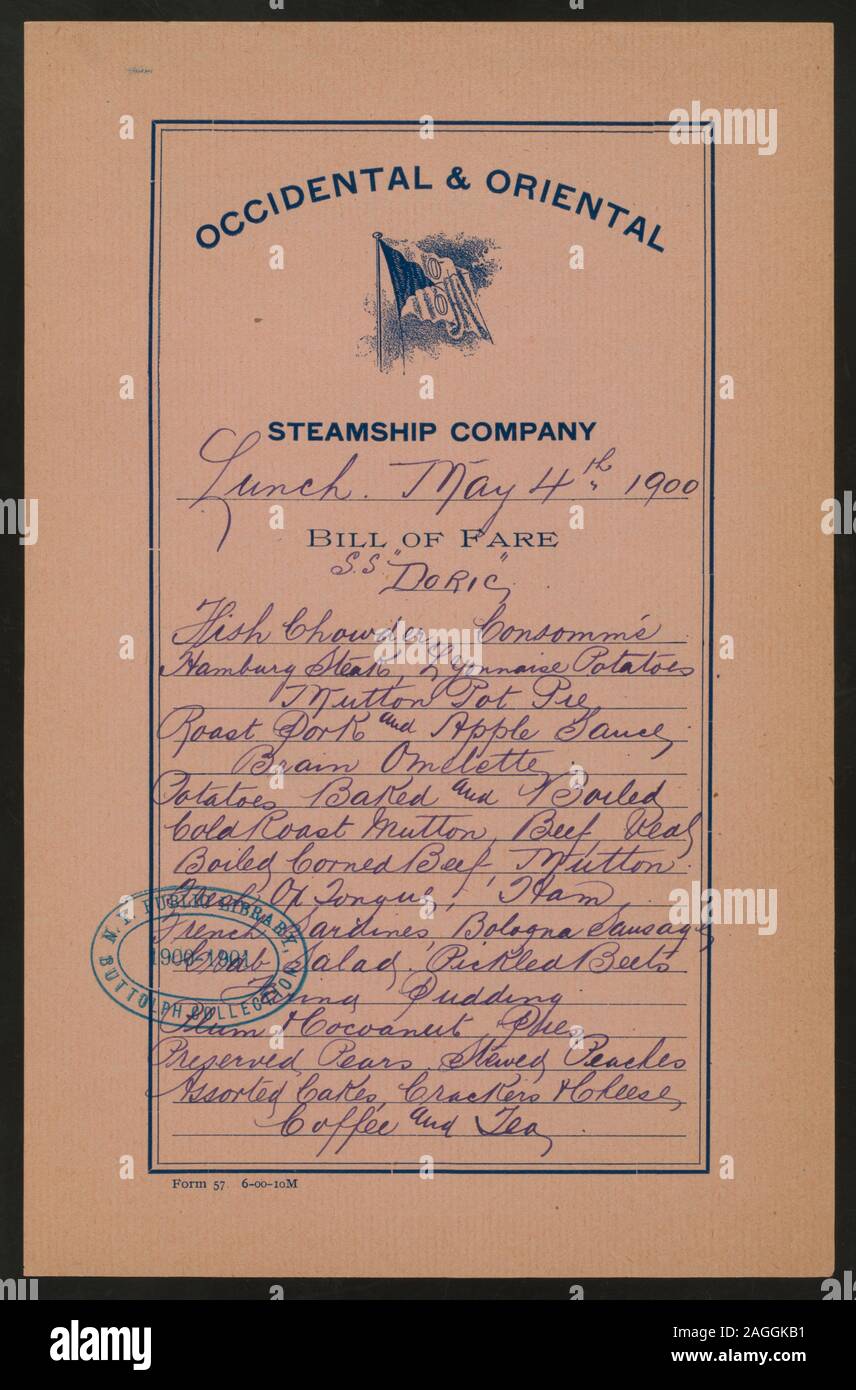 OCCIDENTAL & ORIENTAL
STEAMSHIP COMPANY
Lunch. May 4th 1900
BILL OF FARE
S.S. "DORIC"
Fish Chowder, Consommé
Hamburg Steak, Lyonnaise Potatoes
Mutton Pot Pie
Roast Pork and Apple Sauce
Brain Omelette
Potatoes Baked and Boiled
Cold Roast Mutton, Beef, Veal
Boiled Corned Beef, Mutton
Fresh Ox Tongue, Ham
French Sardines, Bologna Sausage
Crab Salad. Pickled Beets
Farina Pudding
Plum & Cocoanut Pies
Preserved Pears Stewed Peaches
Assorted Cakes, Crackers & Cheese
Coffee and Tea
N.Y. PUBLIC LIBRARY,
1900-1901
BUTTOLPH COLLECTION
Form 57 6-00-10M
alamy
alamy
Image ID: 2AGGKB1
www.alamy.com